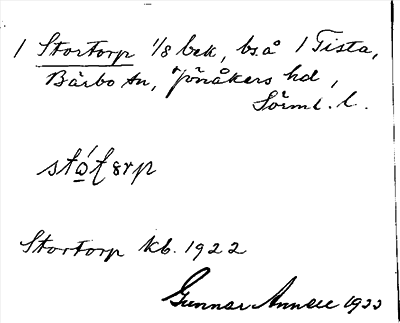 1 Stortorp 1/8 bzk, bså 1 Tista,
Bärbo sn, Jönåkers hd,
Sörml. l.
Stortorp kb. 1922
Gunnar 1933